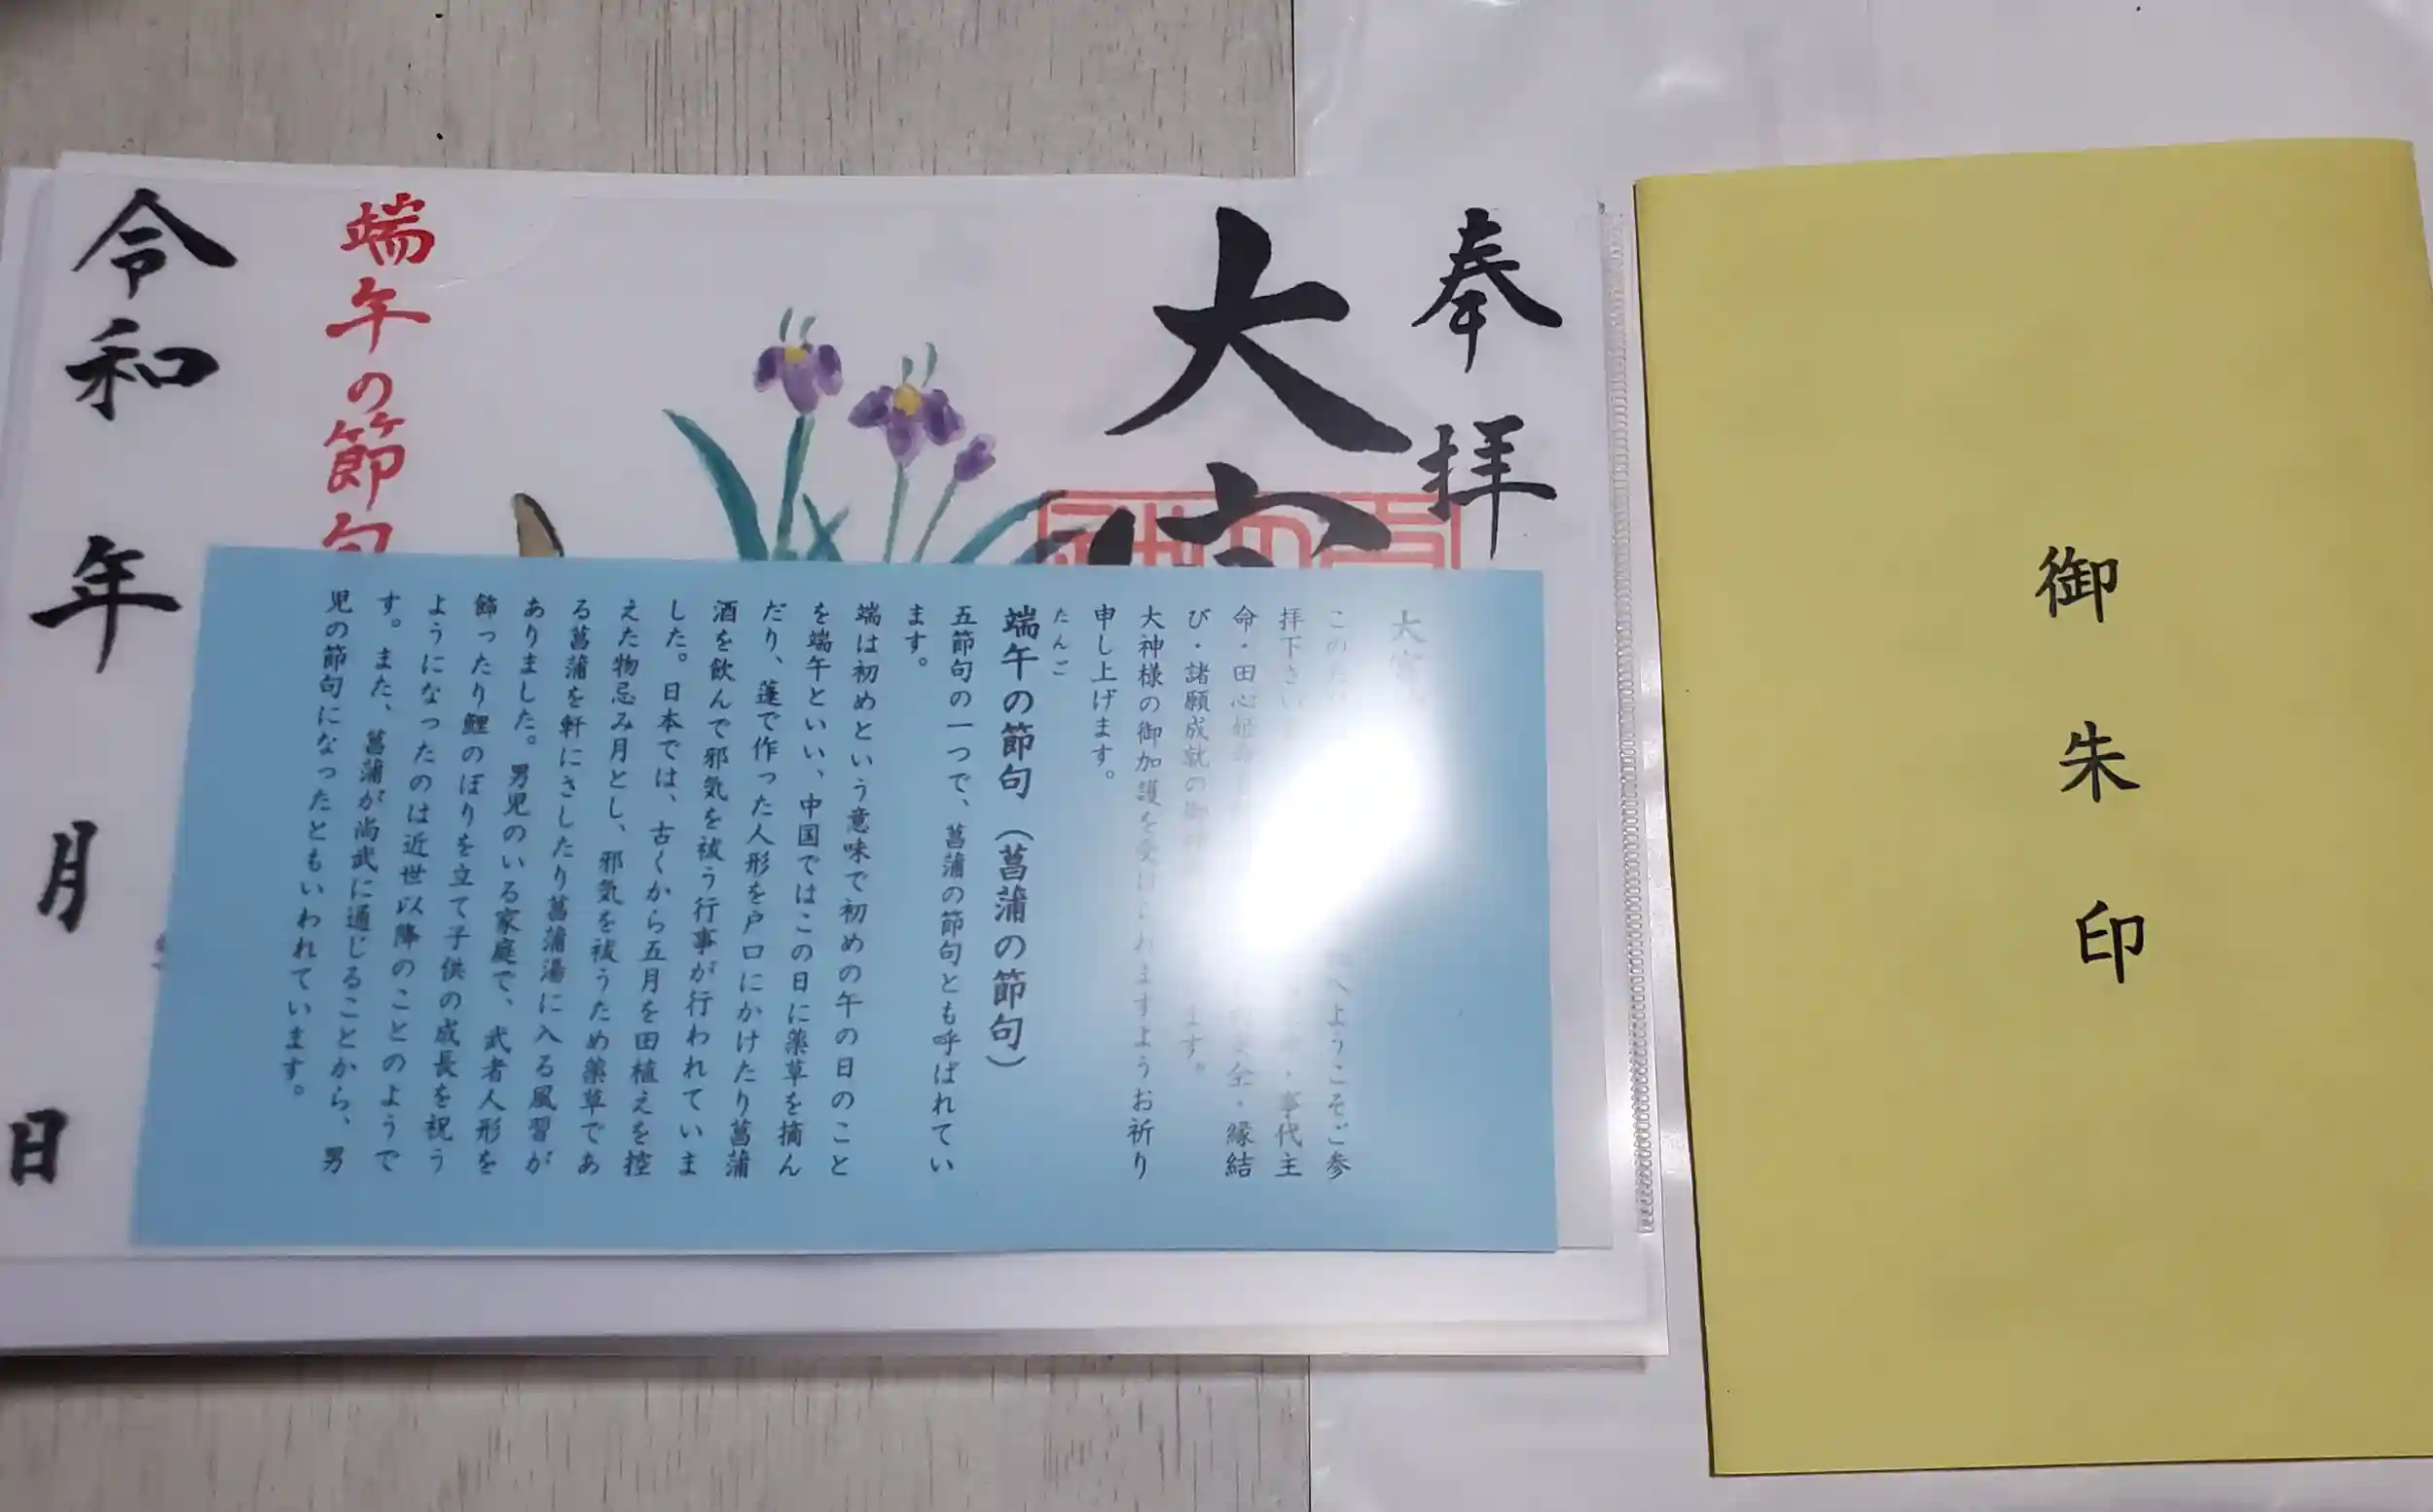 御朱印
奉拝
大宮
端午の節句
令和 年 月 日
大宮
へようこそご参
拝下さい ・事代主
命・田心姫命 安全・縁結
び・諸願成就の御神 ます。
大神様の御加護を受けられますようお祈り
申し上げます。
たんご
端午の節句（菖蒲の節句）
五節句の一つで、菖蒲の節句とも呼ばれてい
ます。
端は初めという意味で初めの午の日のこと
を端午といい、中国ではこの日に薬草を摘ん
だり、蓬で作った人形を戸口にかけたり菖蒲
酒を飲んで邪気を祓う行事が行われていま
した。日本では、古くから五月を田植えを控
えた物忌み月とし、邪気を祓うため薬草であ
る菖蒲を軒にさしたり菖蒲湯に入る風習が
ありました。男児のいる家庭で、武者人形を
飾ったり鯉のぼりを立て子供の成長を祝う
ようになったのは近世以降のことのようで
す。また、菖蒲が尚武に通じることから、男
児の節句になったともいわれています。